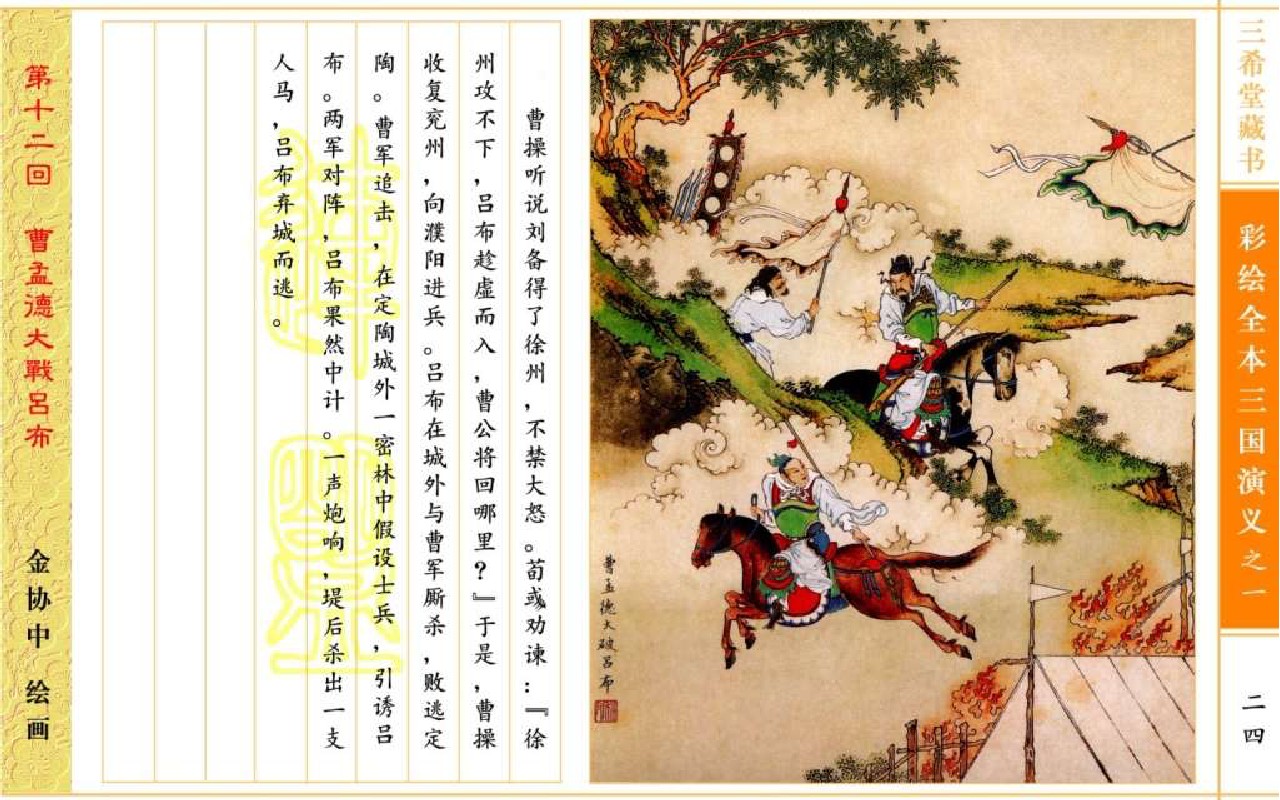 三希堂藏书
彩绘全本三国演义之一
二四
曹孟德大破吕布
曹操听说刘备得了徐州，不禁大怒。荀彧劝谏：『徐
州攻不下，吕布趁虚而入，曹公将回哪里？』于是，曹操
收复兖州，向濮阳进兵。吕布在城外与曹军厮杀，败逃定
陶。曹军追击，在定陶城外一密林中假设士兵，引诱吕
布。两军对阵，吕布果然中计。一声炮响，堤后杀出一支
人马，吕布弃城而逃。
第十二回 曹孟德大戰呂布
金协中 绘画